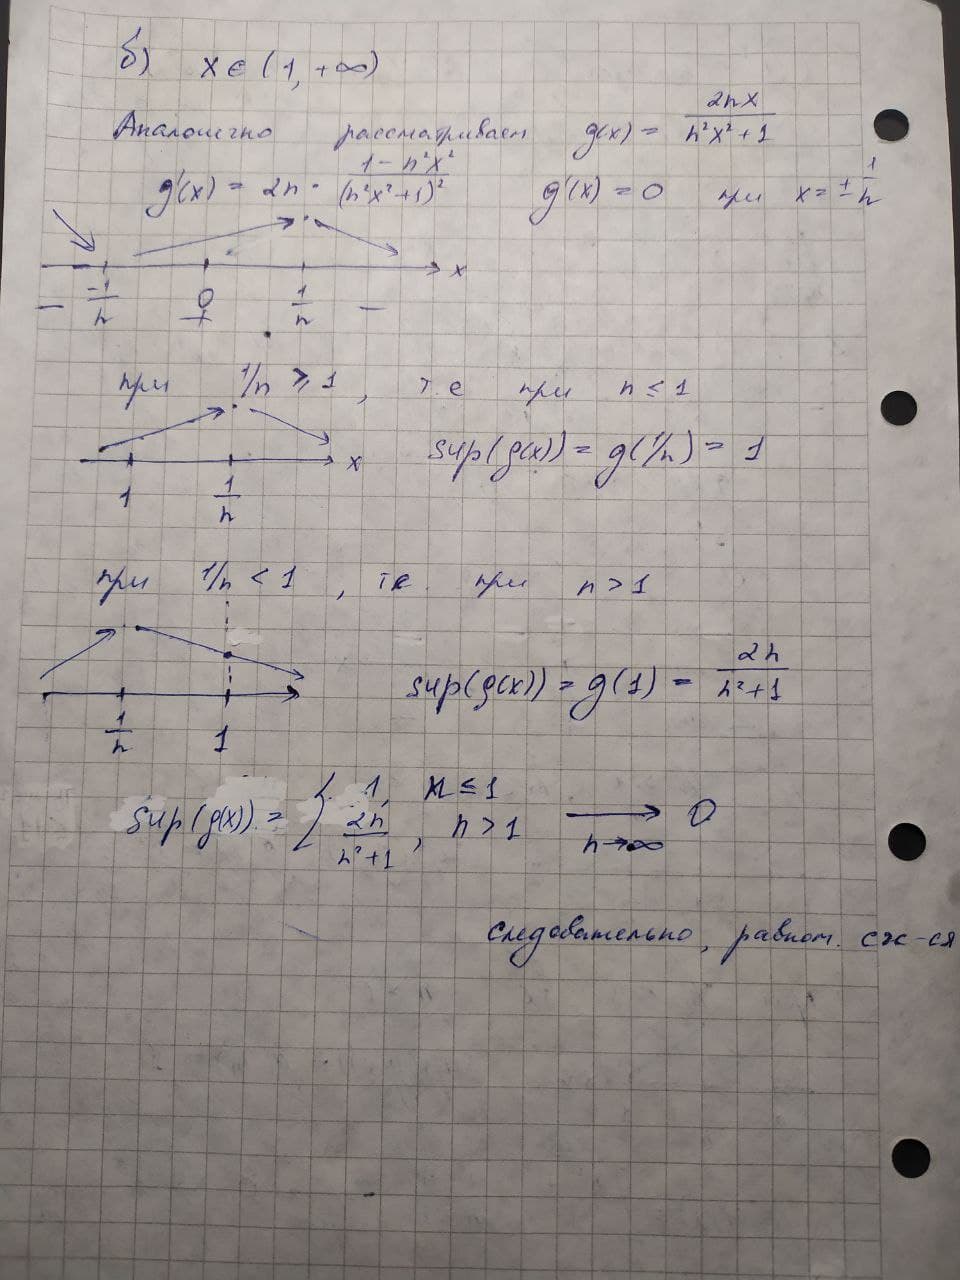 б) x ∈ (1, +∞)
Аналогично рассматриваем g(x) = 2nx / (n²x² + 1)
g'(x) = 2n · (1 - n²x²) / (n²x² + 1)² g'(x) = 0 при x = ± 1/n
x
-1/n 0 1/n
− + −
при 1/n ⩾ 1, т.е при n ≤ 1
x
1 1/n
sup(g(x)) = g(1/n) = 1
при 1/n < 1, т.е. при n > 1
1/n 1
sup(g(x)) = g(1) = 2n / (n² + 1)
sup(g(x)) = { 1, n ≤ 1
2n / (n² + 1), n > 1 → 0
n→∞
следовательно, равном. сх-ся